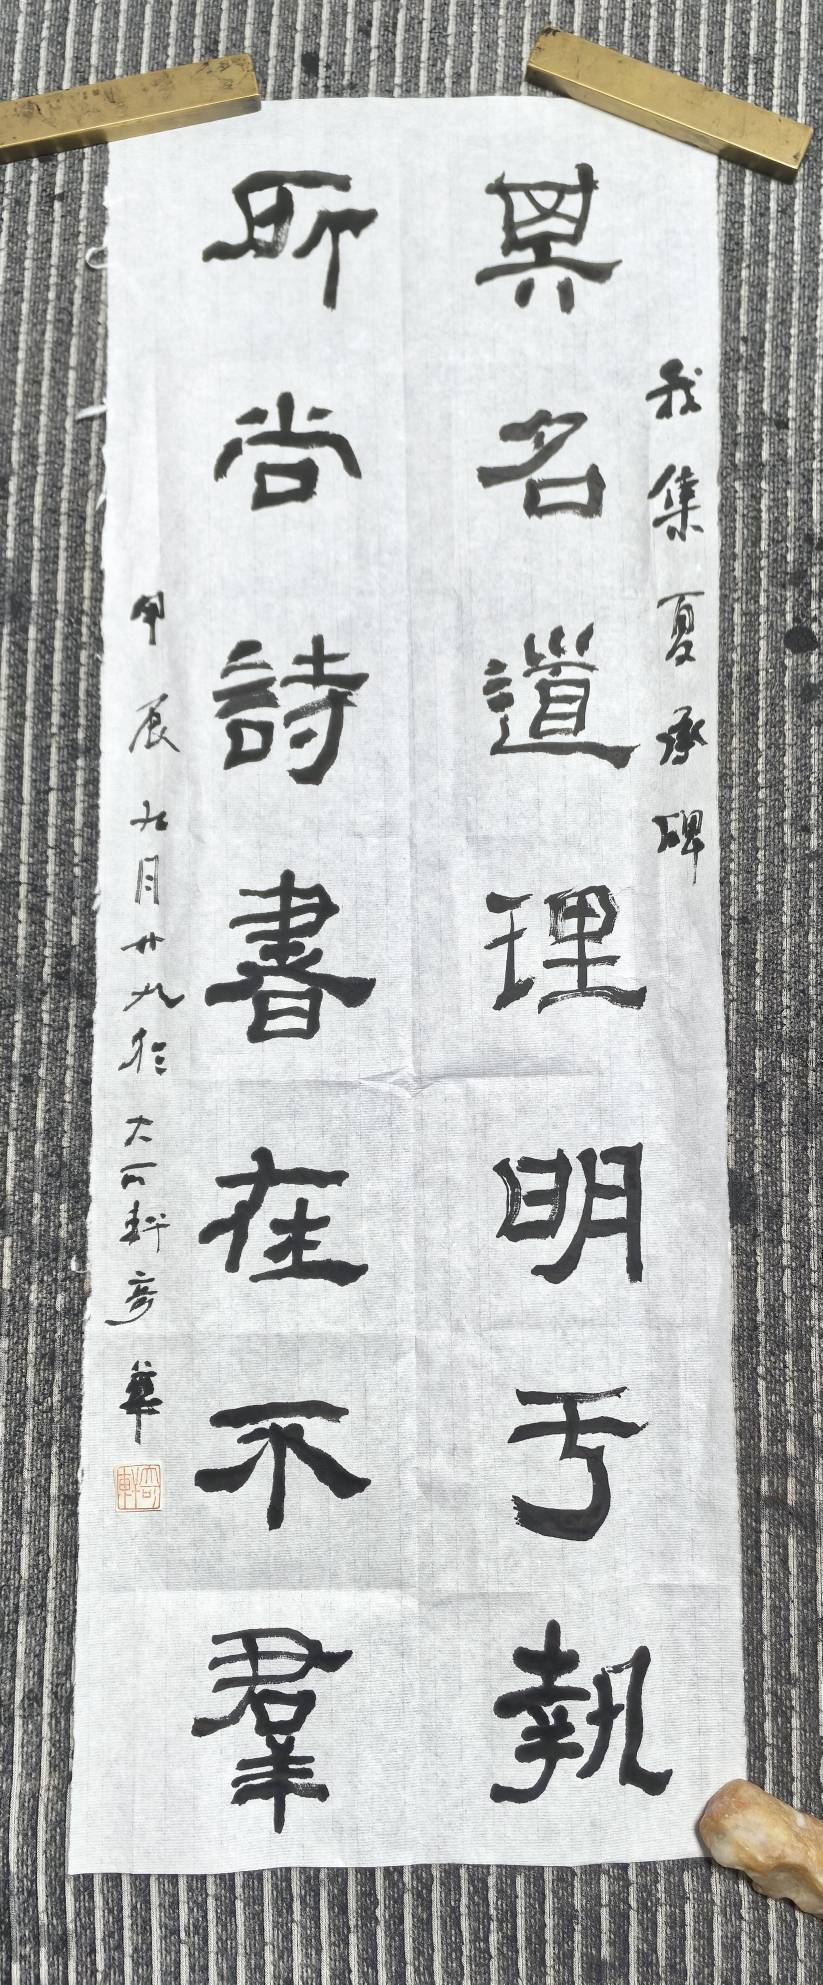 我集夏承碑
其名道理明于執
所尚詩書在不羣
甲辰九月廿九於大可軒彥華